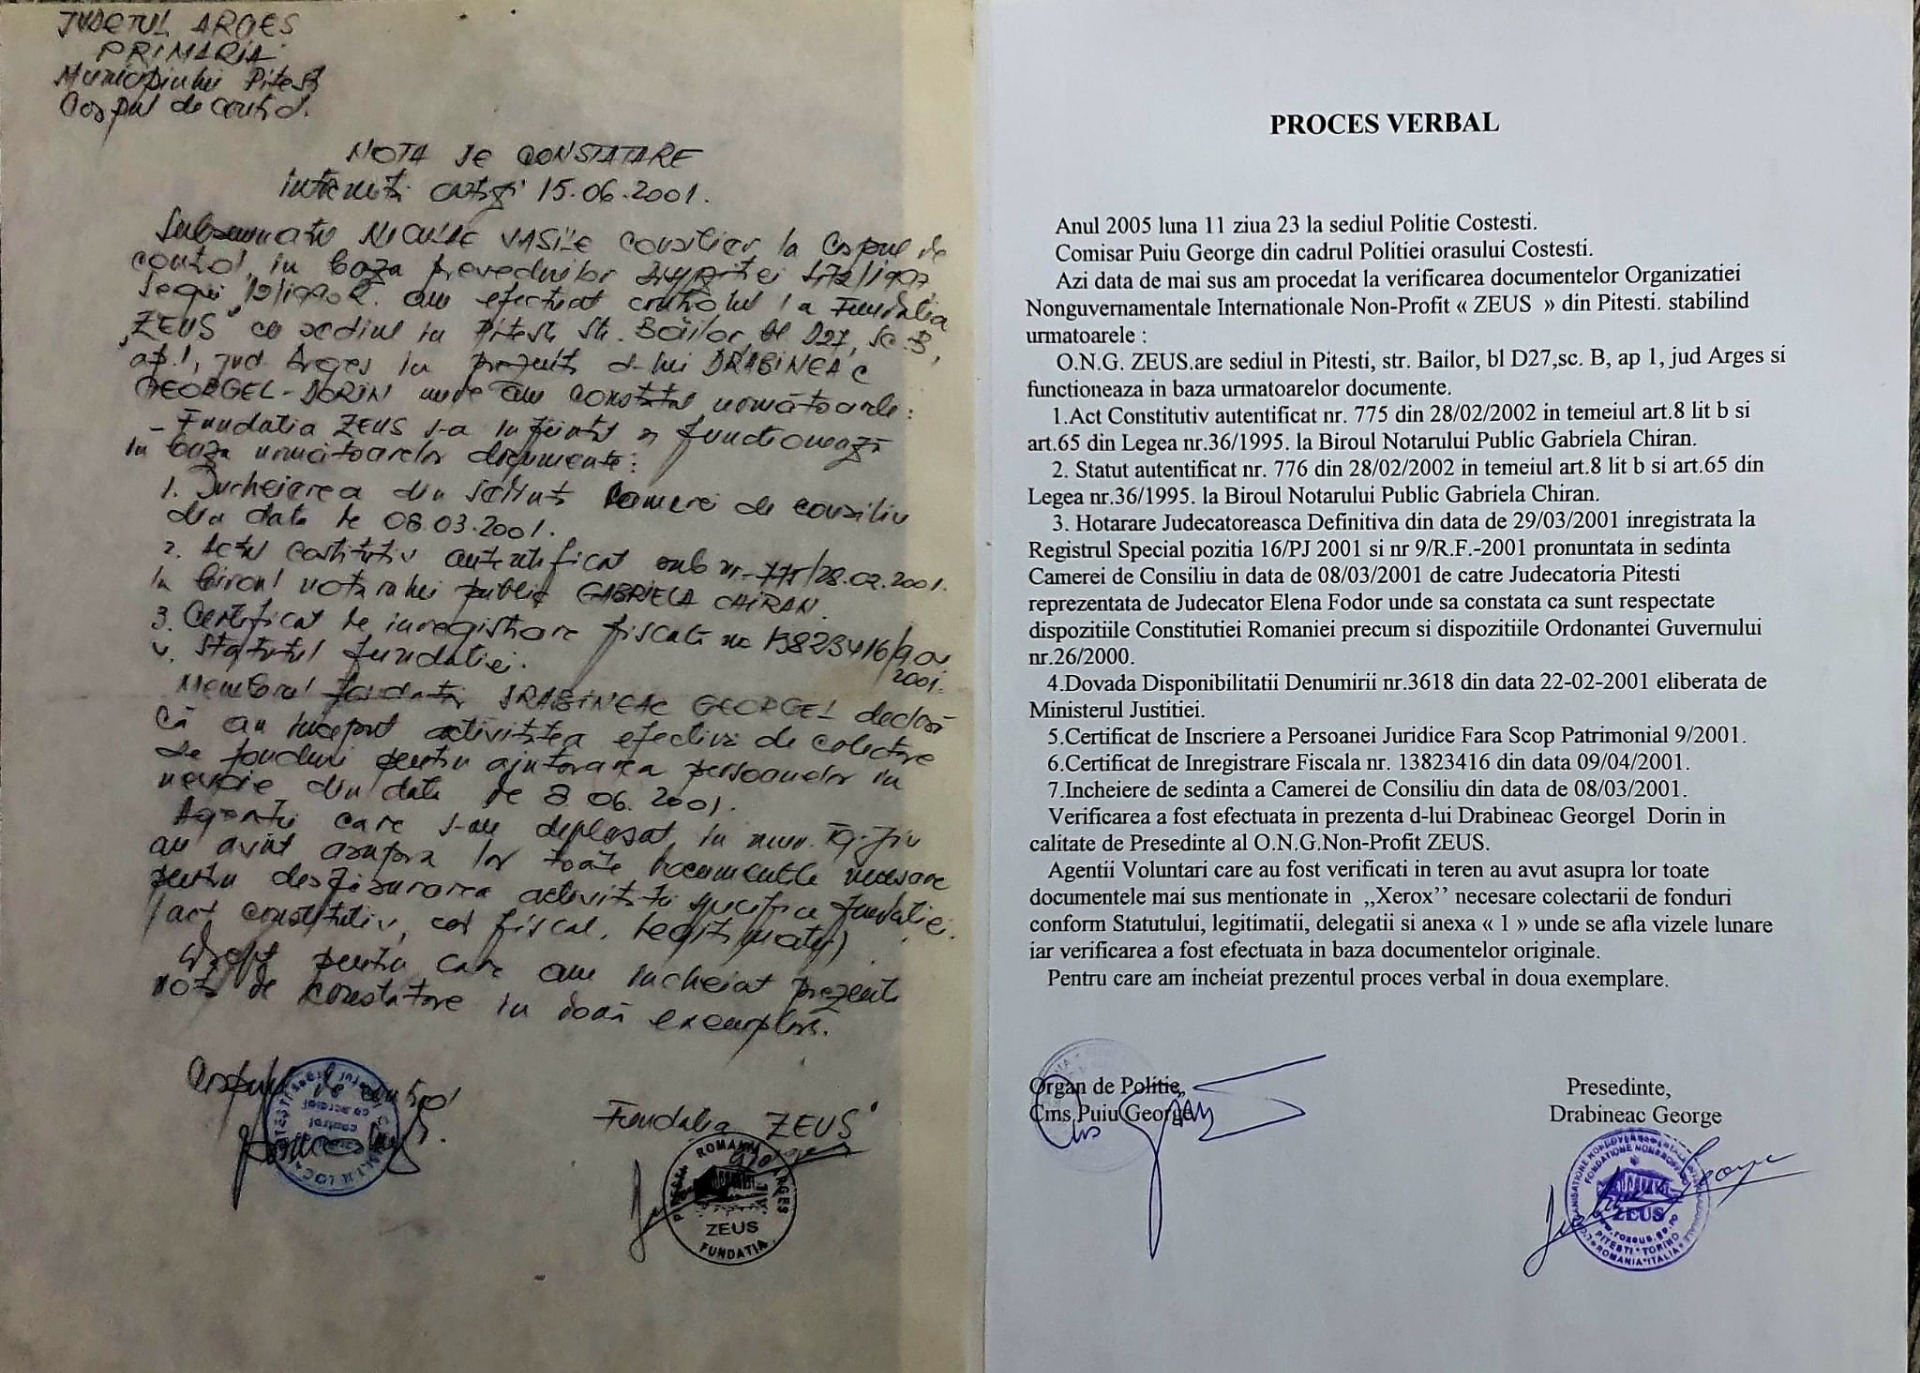 JUDETUL ARGES
PRIMARIA
Municipiului Pitesti
Corpul de control.
NOTA DE CONSTATARE
intocmita astazi 15.06.2001.
Subsemnatu NICULAE VASILE consilier la Corpul de
control, in baza prevederilor
12/1990 am efectuat controlul la Fundatia
„ZEUS" cu sediul in Pitesti str. Bailor, bl D27, sc. B,
ap. 1, jud Arges in prezenta d-lui DRABINEAC
GEORGEL-DORIN unde am constatat urmatoarele:
- Fundatia ZEUS s-a infiintat si functioneaza
in baza urmatoarelor documente:
1. Incheierea din sedinta Camerei de consiliu
din data de 08.03.2001.
2. Actul costitutiv autentificat sub nr. 775/28.02.2001.
la biroul notarului public GABRIELA CHIRAN.
3. Certificat de inregistrare fiscala nr 13823416/9.04
2001.
4. Statutul fundatiei.
Membrul fondator DRABINEAC GEORGEL declara
că au inceput activitatea efectiva de colectare
de fonduri pentru ajutorarea persoanelor in
nevoie din data de 8.06.2001.
Agentii care s-au deplasat in mun. Tg-Jiu
au avut asupra lor toate documentele necesare
pentru desfasurarea activitatii specifice fundatiei.
(act constitutiv, cod fiscal, legitimatii)
Drept pentru care am incheiat prezenta
nota de constatare in două exemplare.
Corpul de control
Fundatia ZEUS"
ROMANIA ARGES
PITESTI
ZEUS
FUNDATIA
PROCES VERBAL
Anul 2005 luna 11 ziua 23 la sediul Politie Costesti.
Comisar Puiu George din cadrul Politiei orasului Costesti.
Azi data de mai sus am procedat la verificarea documentelor Organizatiei
Nonguvernamentale Internationale Non-Profit « ZEUS » din Pitesti. stabilind
urmatoarele :
O.N.G. ZEUS.are sediul in Pitesti, str. Bailor, bl D27,sc. B, ap 1, jud Arges si
functioneaza in baza urmatoarelor documente.
1.Act Constitutiv autentificat nr. 775 din 28/02/2002 in temeiul art.8 lit b si
art.65 din Legea nr.36/1995. la Biroul Notarului Public Gabriela Chiran.
2. Statut autentificat nr. 776 din 28/02/2002 in temeiul art.8 lit b si art.65 din
Legea nr.36/1995. la Biroul Notarului Public Gabriela Chiran.
3. Hotarare Judecatoreasca Definitiva din data de 29/03/2001 inregistrata la
Registrul Special pozitia 16/PJ 2001 si nr 9/R.F.-2001 pronuntata in sedinta
Camerei de Consiliu in data de 08/03/2001 de catre Judecatoria Pitesti
reprezentata de Judecator Elena Fodor unde sa constata ca sunt respectate
dispozitiile Constitutiei Romaniei precum si dispozitiile Ordonantei Guvernului
nr.26/2000.
4.Dovada Disponibilitatii Denumirii nr.3618 din data 22-02-2001 eliberata de
Ministerul Justitiei.
5.Certificat de Inscriere a Persoanei Juridice Fara Scop Patrimonial 9/2001.
6.Certificat de Inregistrare Fiscala nr. 13823416 din data 09/04/2001.
7.Incheiere de sedinta a Camerei de Consiliu din data de 08/03/2001.
Verificarea a fost efectuata in prezenta d-lui Drabineac Georgel Dorin in
calitate de Presedinte al O.N.G.Non-Profit ZEUS.
Agentii Voluntari care au fost verificati in teren au avut asupra lor toate
documentele mai sus mentionate in ,,Xerox’’ necesare colectarii de fonduri
conform Statutului, legitimatii, delegatii si anexa « 1 » unde se afla vizele lunare
iar verificarea a fost efectuata in baza documentelor originale.
Pentru care am incheiat prezentul proces verbal in doua exemplare.
Organ de Politie,
Cms Puiu George
Presedinte,
Drabineac George
ZEUS
PITESTI * TORINO
ROMANIA*ITALIA